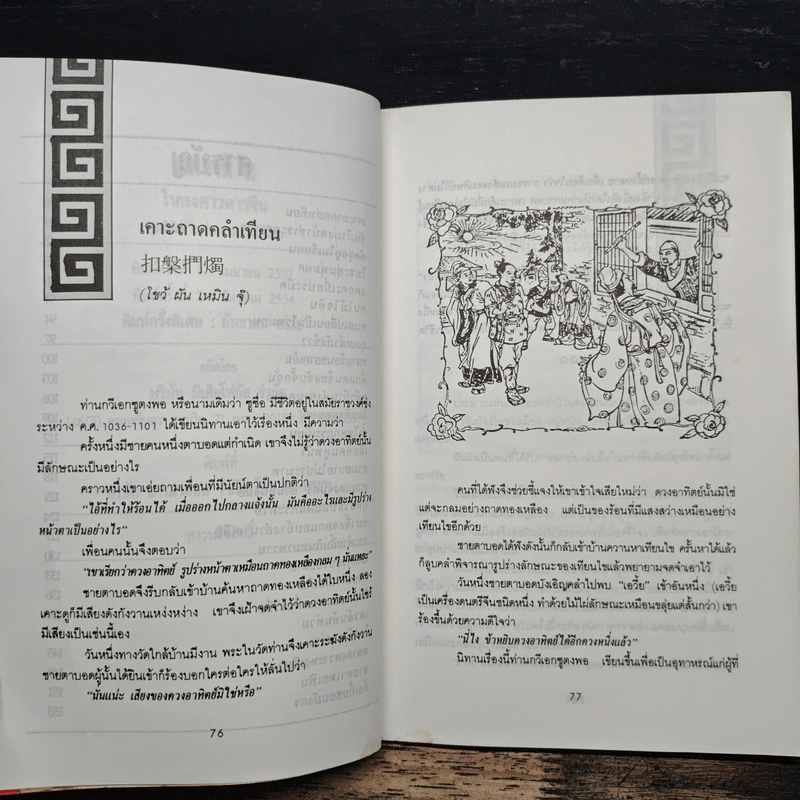 เคาะถาดคลำเทียน
扣槃捫燭
(โขว้ ผัน เหมิน จุ๊)
ท่านกวีเอกซูตงพอ หรือนามเดิมว่า ซูซื่อ มีชีวิตอยู่ในสมัยราชวงศ์ซ่ง
ระหว่าง ค.ศ. 1036-1101 ได้เขียนนิทานเอาไว้เรื่องหนึ่ง มีความว่า
ครั้งหนึ่งมีชายคนหนึ่งตาบอดแต่กำเนิด เขาจึงไม่รู้ว่าดวงอาทิตย์นั้น
มีลักษณะเป็นอย่างไร
คราวหนึ่งเขาเอ่ยถามเพื่อนที่มีนัยน์ตาเป็นปกติว่า
“ไอ้ที่ทำให้ร้อนได้ เมื่อออกไปกลางแจ้งนั้น มันคืออะไรและมีรูปร่าง
หน้าตาเป็นอย่างไร”
เพื่อนคนนั้นจึงตอบว่า
“เขาเรียกว่าดวงอาทิตย์ รูปร่างหน้าตาเหมือนถาดทองเหลืองกลม ๆ นั่นแหละ”
ชายตาบอดจึงรีบกลับเข้าบ้านค้นหาถาดทองเหลืองได้ใบหนึ่ง ลอง
เคาะดูก็มีเสียงดังกังวานเหง่งหง่าง เขาจึงเฝ้าจดจำไว้ว่าดวงอาทิตย์นั้นไซร้
มีเสียงเป็นเช่นนี้เอง
วันหนึ่งทางวัดใกล้บ้านมีงาน พระในวัดท่านจึงเคาะระฆังดังกังวาน
ชายตาบอดผู้นั้นได้ยินเข้าก็ร้องบอกใครต่อใครให้ลั่นไปว่า
“นั่นแน่ะ เสียงของดวงอาทิตย์มิใช่หรือ”
76
คนที่ได้ฟังจึงช่วยชี้แจงให้เขาเข้าใจเสียใหม่ว่า ดวงอาทิตย์นั้นมิใช่
แต่จะกลมอย่างถาดทองเหลือง แต่เป็นของร้อนที่มีแสงสว่างเหมือนอย่าง
เทียนไขอีกด้วย
ชายตาบอดได้ฟังดังนั้นก็กลับเข้าบ้านควานหาเทียนไข ครั้นหาได้แล้ว
ก็ลูบคลำพิจารณารูปร่างลักษณะของเทียนไขและพยายามจดจำเอาไว้
วันหนึ่งชายตาบอดบังเอิญคลำไปพบ “เอวี้ย” เข้าอันหนึ่ง (เอวี้ย
เป็นเครื่องดนตรีจีนชนิดหนึ่ง ทำด้วยไม้ไผ่ลักษณะเหมือนขลุ่ยแต่สั้นกว่า) เขา
ร้องขึ้นด้วยความดีใจว่า
“นี่ไง ข้าหยิบดวงอาทิตย์ได้อีกดวงหนึ่งแล้ว”
นิทานเรื่องนี้ท่านกวีเอกซูตงพอ เขียนขึ้นเพื่อเป็นอุทาหรณ์แก่ผู้ที่
77